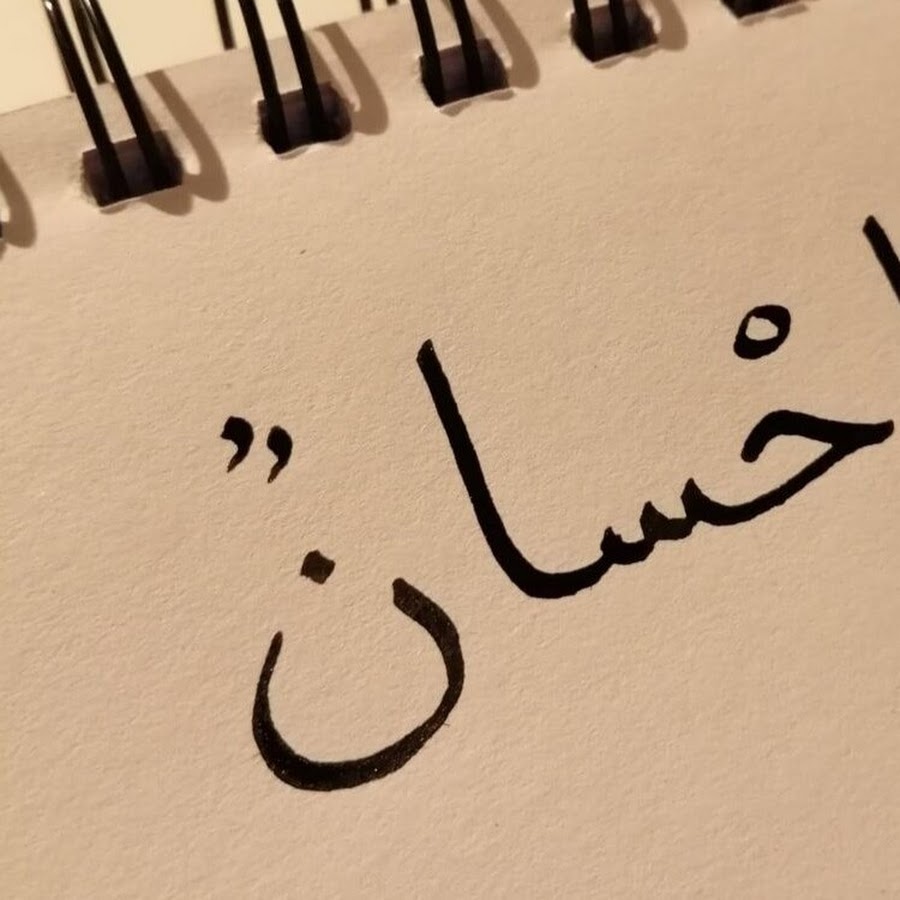 احْسانٌ